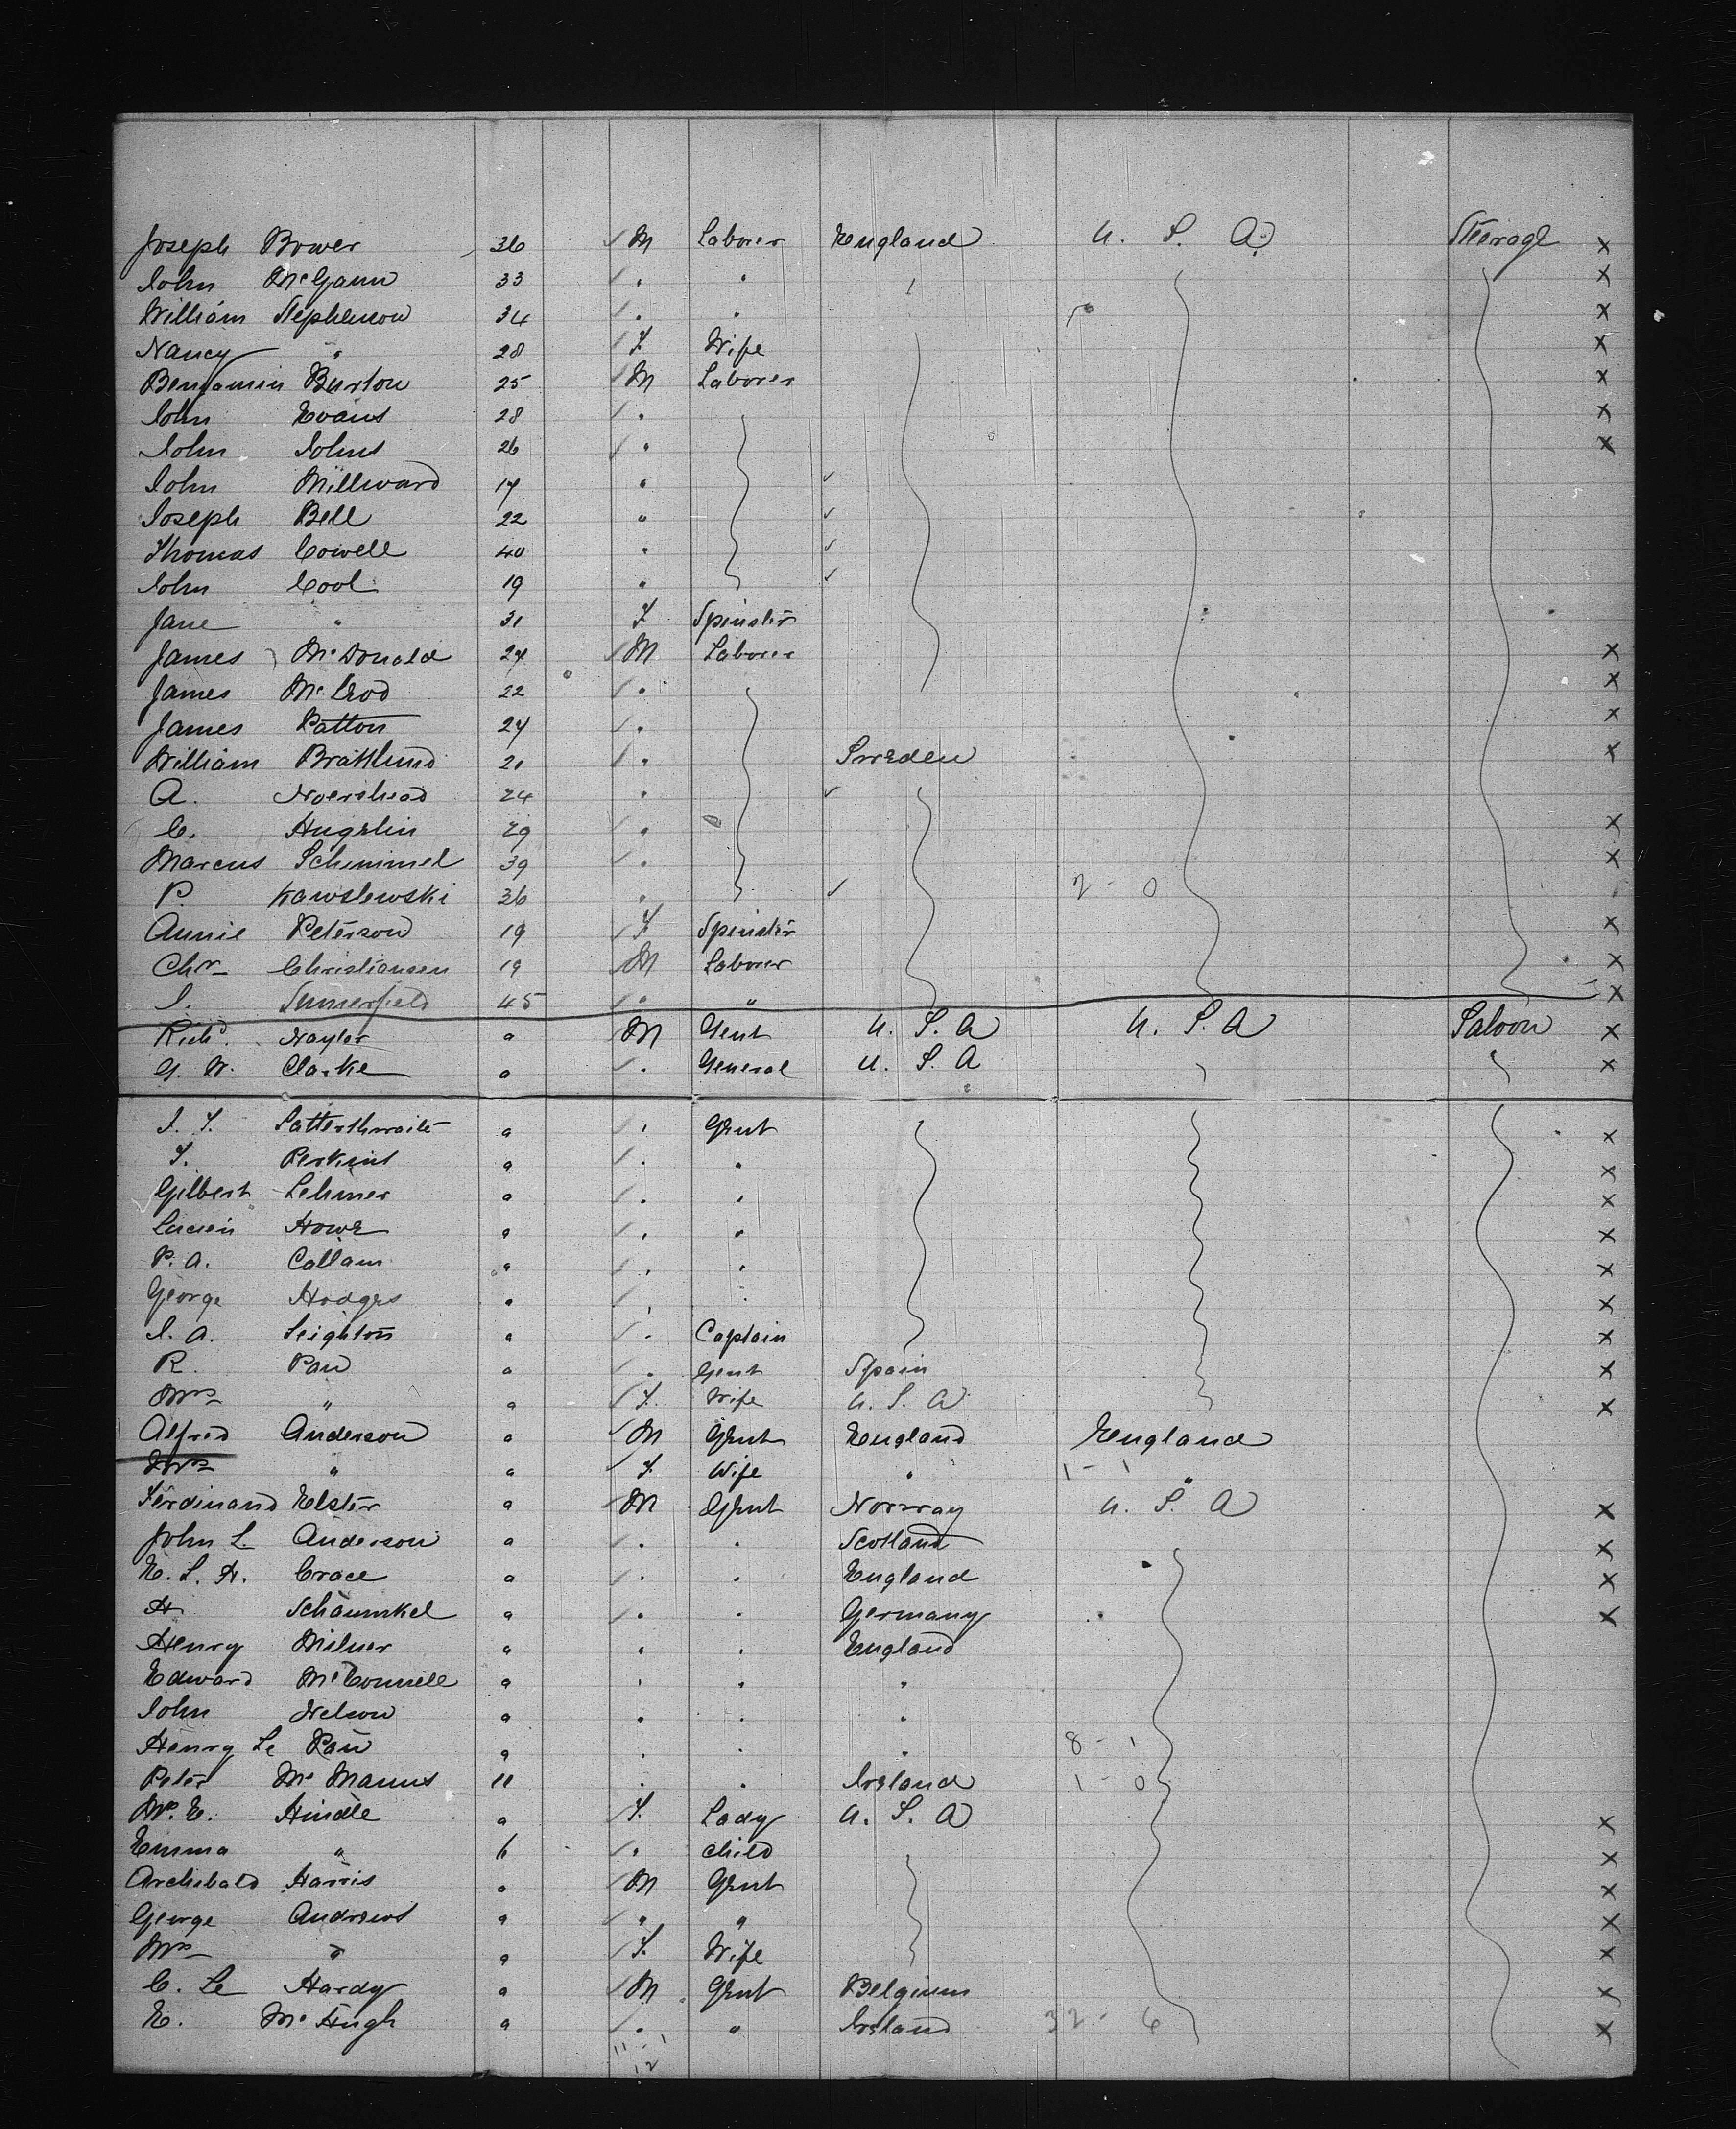 Joseph Bower 36 M Laborer England U. S. A. Steerage X
John McGann 33 " " " X
William Stephenson 34 " " X
Nancy " 28 F. Wife X
Benjamin Burton 25 M Laborer X
John Evans 28 " X
John Johns 26 " X
John Millward 17 "
Joseph Bell 22 "
Thomas Cowell 40 "
John Cool 19 "
Jane " 31 F Spinster
James McDonald 24 M Laborer X
James 22 " X
James Patton 24 " X
William Brattlund 21 " Sweden X
A. 24 "
C. 29 " X
Marcus Schimmel 39 " X
P. Kawslewski 36 " 2 - 0
Annie Peterson 19 F Spinster X
Chr Christiansen 19 M Laborer X
J. Sumerfield 45 " " X
Richd. Naylor a M Gent U. S. A U. S. A Saloon X
G. W. Clarke a " General U. S. A X
J. T. Satterthwaite a " Gent X
T. Perkins a " " X
Gilbert Lehmer a " " X
Lucien Howe a " " X
P. A. Callam a " " X
George Hodges a " " X
J. A. Leighton a " Captain X
R. Pau a " Gent Spain X
Mrs " a F. Wife U. S. A X
Alfred Anderson a M Gent England England
Mrs " a F. Wife " " 1 - 1
Ferdinand Elster a M Gent Norway U. S. A X
John L. Anderson a " " Scotland X
E. L. H. Crace a " " England X
H Schaumkel a " " Germany X
Henry Milner a " " England
Edward McConnell a " " "
John Nelson a " " "
Henry Le Pau a " " " 8 - 1
Peter McManus 11 " " Ireland 1 - 0
Mrs. E. Hindle a F. Lady U. S. A X
Emma " 6 " Child X
Archibald Harris a M Gent X
George Andrews a " " X
Mrs " a F. Wife X
C. Le Hardy a M Gent Belgium X
E. McHugh a " " Ireland 32 - 6 X
11 - 1
12